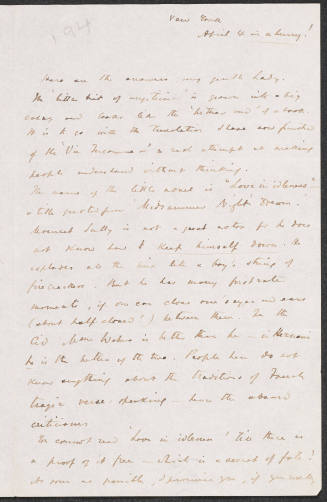 194
New York
April 4 in a hurry!
Here are the answers my gentle lady.
The "little bit of mysticism" is grown into a big
essay and looks like the "      " of a book.
It is to go with the translation I have now finished
of the "Via             " a real attempt at making
people understand without thinking.
The name of the little novel is "Love in idleness"
a title quoted from "Midsummer Night's Dream.
Mounet Sully is not a great actor for he does
not know how to keep himself down. He
explodes all the time like a boy's string of
firecrackers. But he has many first rate
moments, if one can close one's eyes and ears
(about half closed!) between them. In the
Cid Mme          is better than he – in Hernani
he is the better of the two. People here do not
know anything about the traditions of French
tragic verse speaking – hence the absurd
criticisms
You cannot read 'Love in idleness' till there is
a proof of it free – which is a secret of fate!
As soon as possible, I promise you, if you really